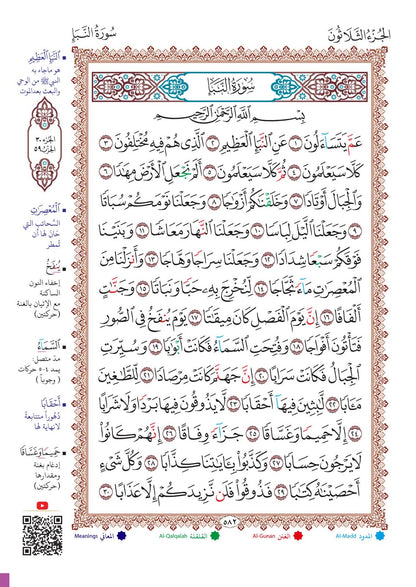 الجزء الثلاثون
سورة النبإ
سُورَةُ النَّبَإِ
بِسْمِ اللَّهِ الرَّحْمَٰنِ الرَّحِيمِ
عَمَّ يَتَسَاءَلُونَ ١ عَنِ النَّبَإِ الْعَظِيمِ ٢ الَّذِي هُمْ فِيهِ مُخْتَلِفُونَ ٣
كَلَّا سَيَعْلَمُونَ ٤ ثُمَّ كَلَّا سَيَعْلَمُونَ ٥ أَلَمْ نَجْعَلِ الْأَرْضَ مِهَادًا ٦
وَالْجِبَالَ أَوْتَادًا ٧ وَخَلَقْنَاكُمْ أَزْوَاجًا ٨ وَجَعَلْنَا نَوْمَكُمْ سُبَاتًا
٩ وَجَعَلْنَا اللَّيْلَ لِبَاسًا ١٠ وَجَعَلْنَا النَّهَارَ مَعَاشًا ١١ وَبَنَيْنَا
فَوْقَكُمْ سَبْعًا شِدَادًا ١٢ وَجَعَلْنَا سِرَاجًا وَهَّاجًا ١٣ وَأَنزَلْنَا مِنَ
الْمُعْصِرَاتِ مَاءً ثَجَّاجًا ١٤ لِّنُخْرِجَ بِهِ حَبًّا وَنَبَاتًا ١٥ وَجَنَّاتٍ
أَلْفَافًا ١٦ إِنَّ يَوْمَ الْفَصْلِ كَانَ مِيقَاتًا ١٧ يَوْمَ يُنفَخُ فِي الصُّورِ
فَتَأْتُونَ أَفْوَاجًا ١٨ وَفُتِحَتِ السَّمَاءُ فَكَانَتْ أَبْوَابًا ١٩ وَسُيِّرَتِ
الْجِبَالُ فَكَانَتْ سَرَابًا ٢٠ إِنَّ جَهَنَّمَ كَانَتْ مِرْصَادًا ٢١ لِّلطَّاغِينَ
مَآبًا ٢٢ لَّابِثِينَ فِيهَا أَحْقَابًا ٢٣ لَّا يَذُوقُونَ فِيهَا بَرْدًا وَلَا شَرَابًا
٢٤ إِلَّا حَمِيمًا وَغَسَّاقًا ٢٥ جَزَاءً وِفَاقًا ٢٦ إِنَّهُمْ كَانُوا
لَا يَرْجُونَ حِسَابًا ٢٧ وَكَذَّبُوا بِآيَاتِنَا كِذَّابًا ٢٨ وَكُلَّ شَيْءٍ
أَحْصَيْنَاهُ كِتَابًا ٢٩ فَذُوقُوا فَلَن نَّزِيدَكُمْ إِلَّا عَذَابًا ٣٠
٥٨٢
النَّبَإِ الْعَظِيمِ
هو ما جاء به
النبي ﷺ من الوحي
والبعث بعد الموت
الجزء ٣٠
الحزب ٥٩
الْمُعْصِرَاتِ
السحائب التي
حان لها أن
تمطر
يُنفَخُ
إخفاء النون
الساكنة
مع الإتيان بالغنة
(حركتين)
السَّمَاءُ
مد متصل:
يمد ٤-٥ حركات
(وجوباً)
أَحْقَابًا
دهوراً متتابعة
لا نهاية لها
حَمِيمًا وَغَسَّاقًا
إدغام بغنة
ومقدارها
(حركتين)
المدود Al-Madd
الغنن Al-Gunan
القلقلة Al-Qalqalah
المعاني Meanings